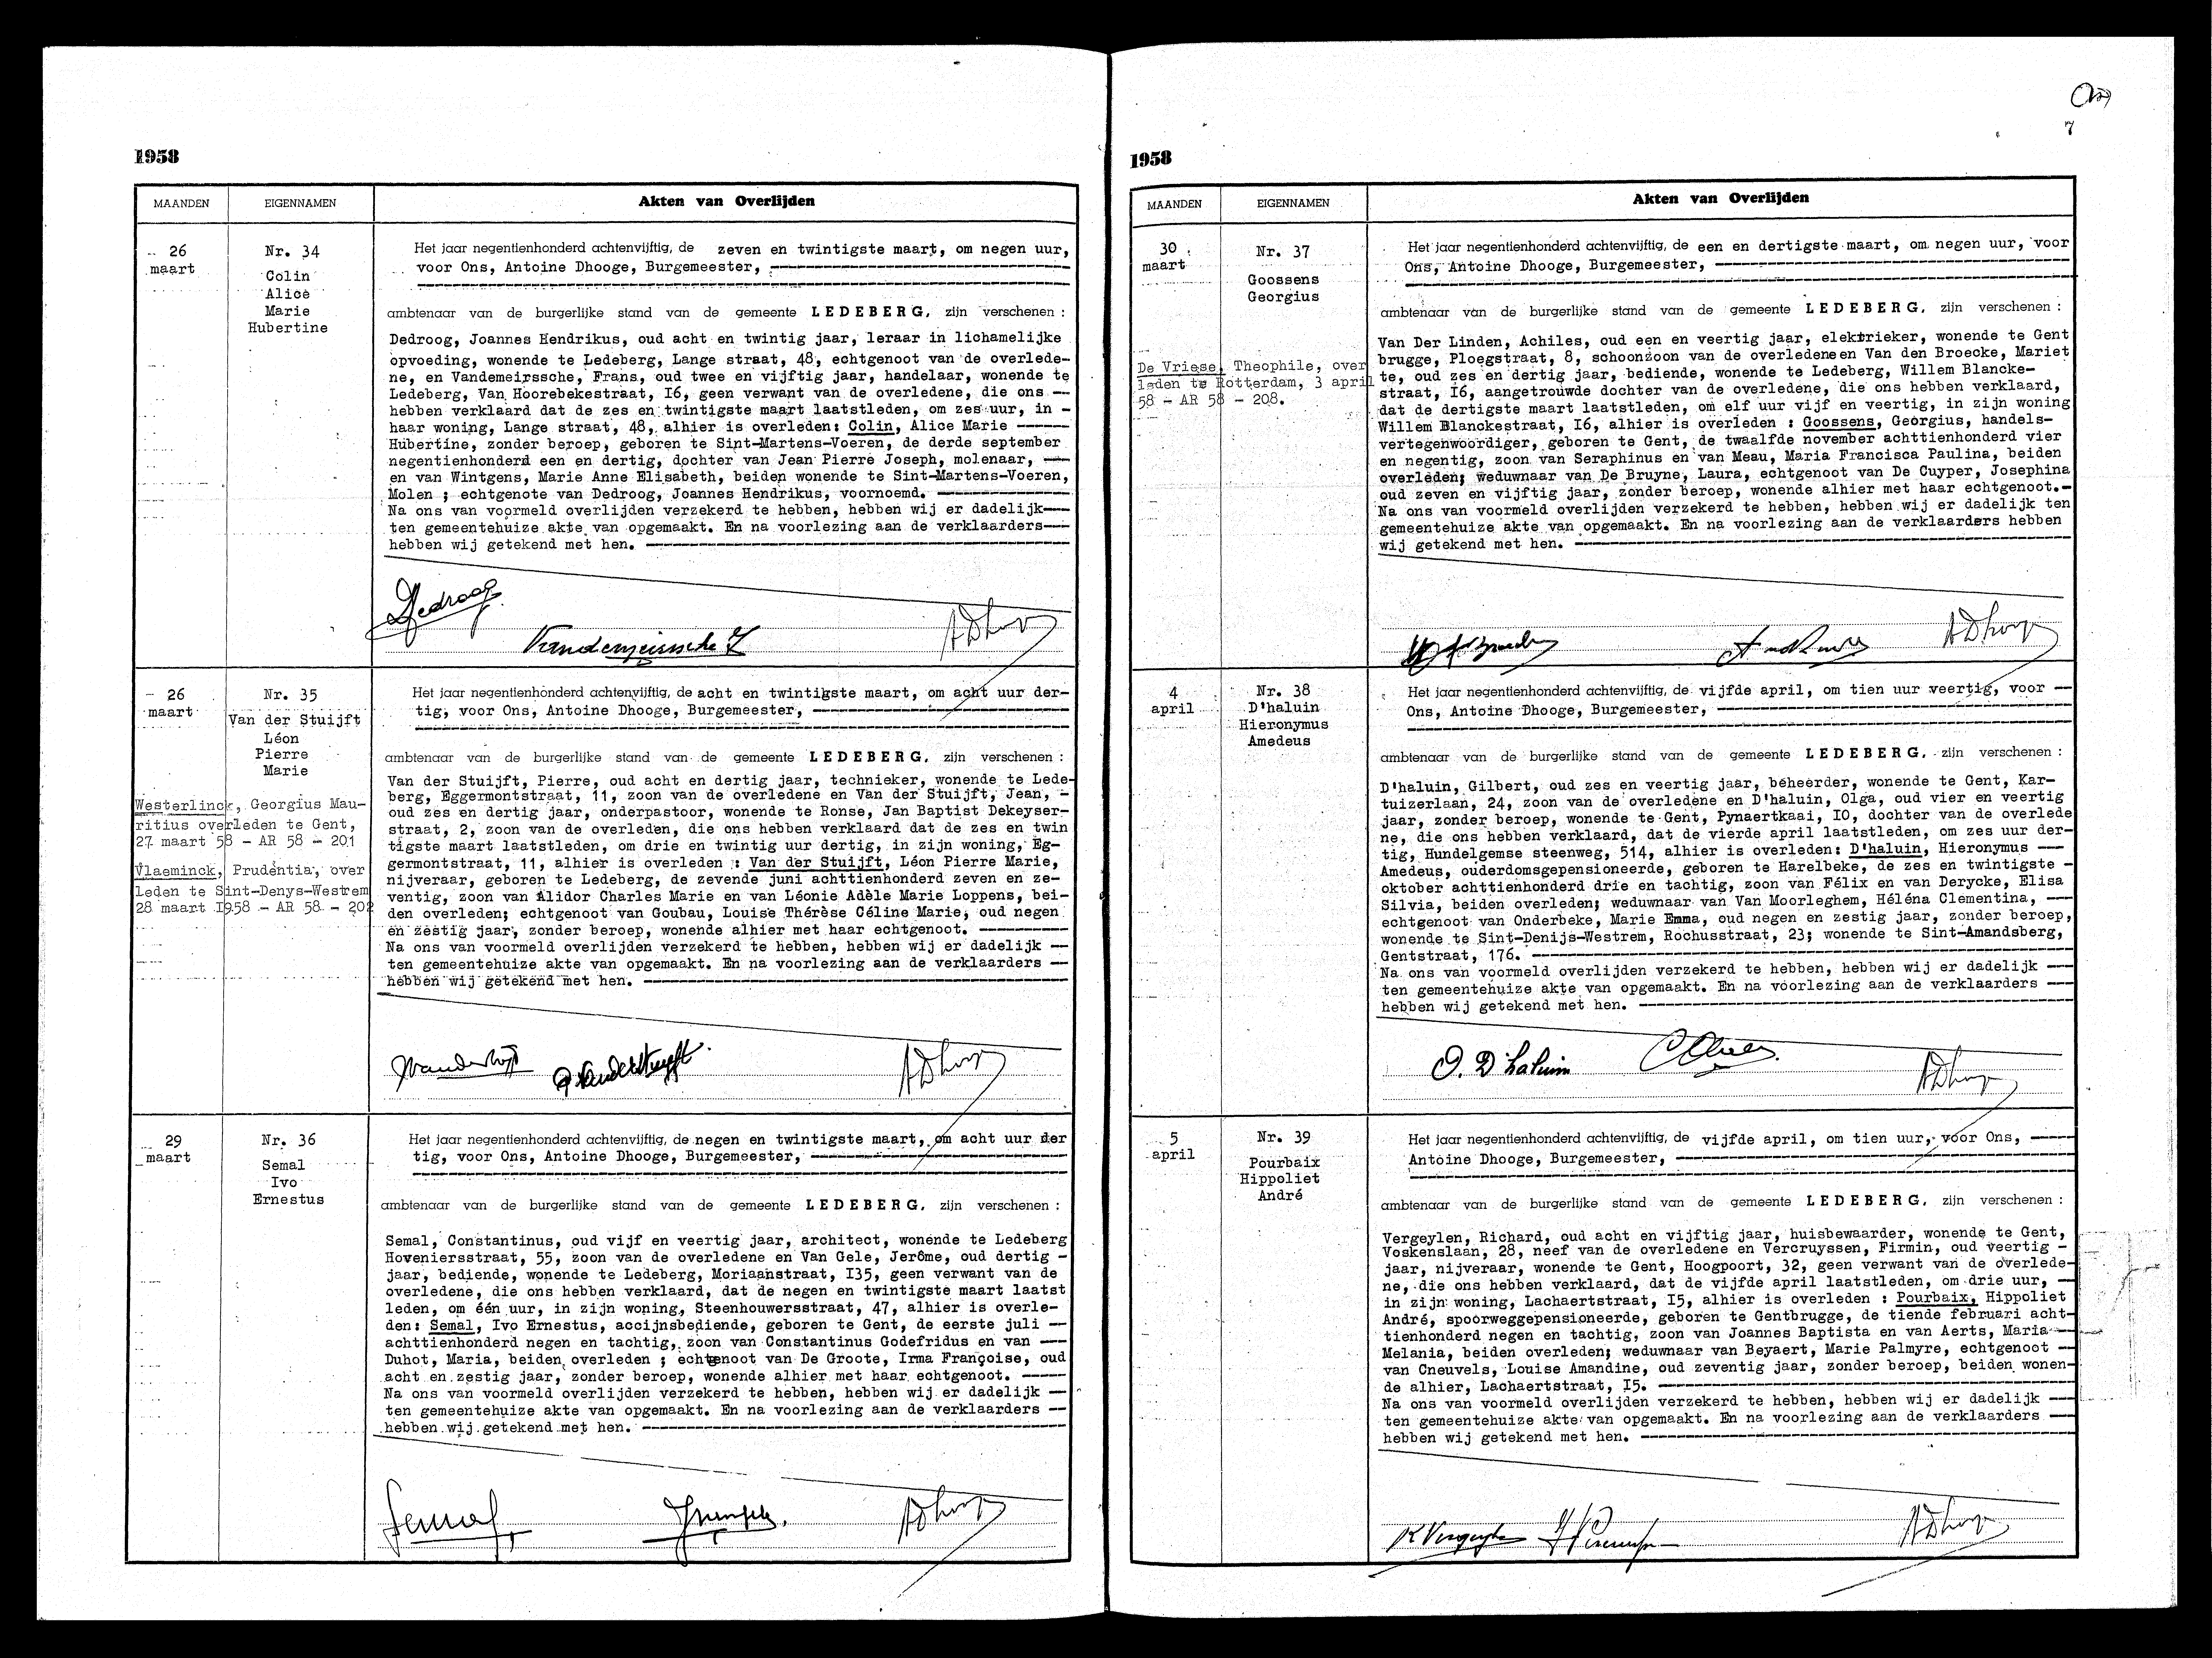 1958
MAANDEN
EIGENNAMEN
Akten van Overlijden
26
maart
Nr. 34
Colin
Alice
Marie
Hubertine
Het jaar negentienhonderd achtenvijftig, de zeven en twintigste maart, om negen uur,
voor Ons, Antoine Dhooge, Burgemeester,
ambtenaar van de burgerlijke stand van de gemeente LEDEBERG, zijn verschenen :
Dedroog, Joannes Hendrikus, oud acht en twintig jaar, leraar in lichamelijke
opvoeding, wonende te Ledeberg, Lange straat, 48, echtgenoot van de overlede-
ne, en Vandemeirssche, Frans, oud twee en vijftig jaar, handelaar, wonende te
Ledeberg, Van Hoorebekestraat, I6, geen verwant van de overledene, die ons —
hebben verklaard dat de zes en twintigste maart laatstleden, om zes uur, in -
haar woning, Lange straat, 48, alhier is overleden: Colin, Alice Marie ———
Hubertine, zonder beroep, geboren te Sint-Martens-Voeren, de derde september
negentienhonderd een en dertig, dochter van Jean Pierre Joseph, molenaar, —
en van Wintgens, Marie Anne Elisabeth, beiden wonende te Sint-Martens-Voeren,
Molen ; echtgenote van Dedroog, Joannes Hendrikus, voornoemd. ———
Na ons van voormeld overlijden verzekerd te hebben, hebben wij er dadelijk—
ten gemeentehuize akte van opgemaakt. En na voorlezing aan de verklaarders—
hebben wij getekend met hen. ———
Dedroog
Vandemeirssche F
ADhooge
26
maart
Nr. 35
Van der Stuijft
Léon
Pierre
Marie
Westerlinck, Georgius Mau-
ritius overleden te Gent,
27 maart 58 - AR 58 - 201
Vlaeminck, Prudentia, over
leden te Sint-Denys-Westrem
28 maart I958 - AR 58 - 202
Het jaar negentienhonderd achtenvijftig, de acht en twintigste maart, om acht uur der-
tig, voor Ons, Antoine Dhooge, Burgemeester,
ambtenaar van de burgerlijke stand van de gemeente LEDEBERG, zijn verschenen :
Van der Stuijft, Pierre, oud acht en dertig jaar, technieker, wonende te Lede-
berg, Eggermontstraat, 11, zoon van de overledene en Van der Stuijft, Jean, -
oud zes en dertig jaar, onderpastoor, wonende te Ronse, Jan Baptist Dekeyser-
straat, 2, zoon van de overleden, die ons hebben verklaard dat de zes en twin
tigste maart laatstleden, om drie en twintig uur dertig, in zijn woning, Eg-
germontstraat, 11, alhier is overleden : Van der Stuijft, Léon Pierre Marie,
nijveraar, geboren te Ledeberg, de zevende juni achttienhonderd zeven en ze-
ventig, zoon van Alidor Charles Marie en van Léonie Adèle Marie Loppens, bei-
den overleden; echtgenoot van Goubau, Louise Thérèse Céline Marie, oud negen
en zestig jaar, zonder beroep, wonende alhier met haar echtgenoot. ———
Na ons van voormeld overlijden verzekerd te hebben, hebben wij er dadelijk —
ten gemeentehuize akte van opgemaakt. En na voorlezing aan de verklaarders —
hebben wij getekend met hen. ———
ADhooge
29
maart
Nr. 36
Semal
Ivo
Ernestus
Het jaar negentienhonderd achtenvijftig, de negen en twintigste maart, om acht uur der
tig, voor Ons, Antoine Dhooge, Burgemeester,
ambtenaar van de burgerlijke stand van de gemeente LEDEBERG, zijn verschenen :
Semal, Constantinus, oud vijf en veertig jaar, architect, wonende te Ledeberg
Hoveniersstraat, 55, zoon van de overledene en Van Gele, Jerôme, oud dertig -
jaar, bediende, wonende te Ledeberg, Moriaanstraat, I35, geen verwant van de
overledene, die ons hebben verklaard, dat de negen en twintigste maart laatst
leden, om één uur, in zijn woning, Steenhouwersstraat, 47, alhier is overle-
den: Semal, Ivo Ernestus, accijnsbediende, geboren te Gent, de eerste juli —
achttienhonderd negen en tachtig, zoon van Constantinus Godefridus en van —
Duhot, Maria, beiden overleden ; echtgenoot van De Groote, Irma Françoise, oud
acht en zestig jaar, zonder beroep, wonende alhier met haar echtgenoot. ——
Na ons van voormeld overlijden verzekerd te hebben, hebben wij er dadelijk —
ten gemeentehuize akte van opgemaakt. En na voorlezing aan de verklaarders —
hebben wij getekend met hen. ———
Semal
ADhooge
7
1958
MAANDEN
EIGENNAMEN
Akten van Overlijden
30
maart
Nr. 37
Goossens
Georgius
De Vriese, Theophile, over
leden te Rotterdam, 3 april
58 - AR 58 - 208.
Het jaar negentienhonderd achtenvijftig, de een en dertigste maart, om negen uur, voor
Ons, Antoine Dhooge, Burgemeester,
ambtenaar van de burgerlijke stand van de gemeente LEDEBERG, zijn verschenen :
Van Der Linden, Achiles, oud een en veertig jaar, elektrieker, wonende te Gent
brugge, Ploegstraat, 8, schoonzoon van de overledene en Van den Broecke, Mariet
te, oud zes en dertig jaar, bediende, wonende te Ledeberg, Willem Blancke-
straat, I6, aangetrouwde dochter van de overledene, die ons hebben verklaard,
dat de dertigste maart laatstleden, om elf uur vijf en veertig, in zijn woning
Willem Blanckestraat, I6, alhier is overleden : Goossens, Georgius, handels-
vertegenwoordiger, geboren te Gent, de twaalfde november achttienhonderd vier
en negentig, zoon van Seraphinus en van Meau, Maria Francisca Paulina, beiden
overleden; weduwnaar van De Bruyne, Laura, echtgenoot van De Cuyper, Josephina
oud zeven en vijftig jaar, zonder beroep, wonende alhier met haar echtgenoot.-
Na ons van voormeld overlijden verzekerd te hebben, hebben wij er dadelijk ten
gemeentehuize akte van opgemaakt. En na voorlezing aan de verklaarders hebben
wij getekend met hen. ———
ADhooge
4
april
Nr. 38
D'haluin
Hieronymus
Amedeus
Het jaar negentienhonderd achtenvijftig, de vijfde april, om tien uur veertig, voor —
Ons, Antoine Dhooge, Burgemeester,
ambtenaar van de burgerlijke stand van de gemeente LEDEBERG, zijn verschenen :
D'haluin, Gilbert, oud zes en veertig jaar, beheerder, wonende te Gent, Kar-
tuizerlaan, 24, zoon van de overledene en D'haluin, Olga, oud vier en veertig
jaar, zonder beroep, wonende te Gent, Pynaertkaai, IO, dochter van de overlede
ne, die ons hebben verklaard, dat de vierde april laatstleden, om zes uur der-
tig, Hundelgemse steenweg, 514, alhier is overleden: D'haluin, Hieronymus —
Amedeus, ouderdomsgepensioneerde, geboren te Harelbeke, de zes en twintigste -
oktober achttienhonderd drie en tachtig, zoon van Félix en van Derycke, Elisa
Silvia, beiden overleden; weduwnaar van Van Moorleghem, Héléna Clementina, —
echtgenoot van Onderbeke, Marie Emma, oud negen en zestig jaar, zonder beroep,
wonende te Sint-Denijs-Westrem, Rochusstraat, 23; wonende te Sint-Amandsberg,
Gentstraat, 176. ———
Na ons van voormeld overlijden verzekerd te hebben, hebben wij er dadelijk —
ten gemeentehuize akte van opgemaakt. En na voorlezing aan de verklaarders —
hebben wij getekend met hen. ———
O. D'haluin
ADhooge
5
april
Nr. 39
Pourbaix
Hippoliet
André
Het jaar negentienhonderd achtenvijftig, de vijfde april, om tien uur, voor Ons, ——
Antoine Dhooge, Burgemeester,
ambtenaar van de burgerlijke stand van de gemeente LEDEBERG, zijn verschenen :
Vergeylen, Richard, oud acht en vijftig jaar, huisbewaarder, wonende te Gent,
Voskenslaan, 28, neef van de overledene en Vercruyssen, Firmin, oud veertig -
jaar, nijveraar, wonende te Gent, Hoogpoort, 32, geen verwant van de overlede-
ne, die ons hebben verklaard, dat de vijfde april laatstleden, om drie uur, —
in zijn woning, Lachaertstraat, I5, alhier is overleden : Pourbaix, Hippoliet
André, spoorweggepensioneerde, geboren te Gentbrugge, de tiende februari acht-
tienhonderd negen en tachtig, zoon van Joannes Baptista en van Aerts, Maria—
Melania, beiden overleden; weduwnaar van Beyaert, Marie Palmyre, echtgenoot —
van Cneuvels, Louise Amandine, oud zeventig jaar, zonder beroep, beiden wonen-
de alhier, Lachaertstraat, I5. ———
Na ons van voormeld overlijden verzekerd te hebben, hebben wij er dadelijk —
ten gemeentehuize akte van opgemaakt. En na voorlezing aan de verklaarders —
hebben wij getekend met hen. ———
R Vergeylen
ADhooge